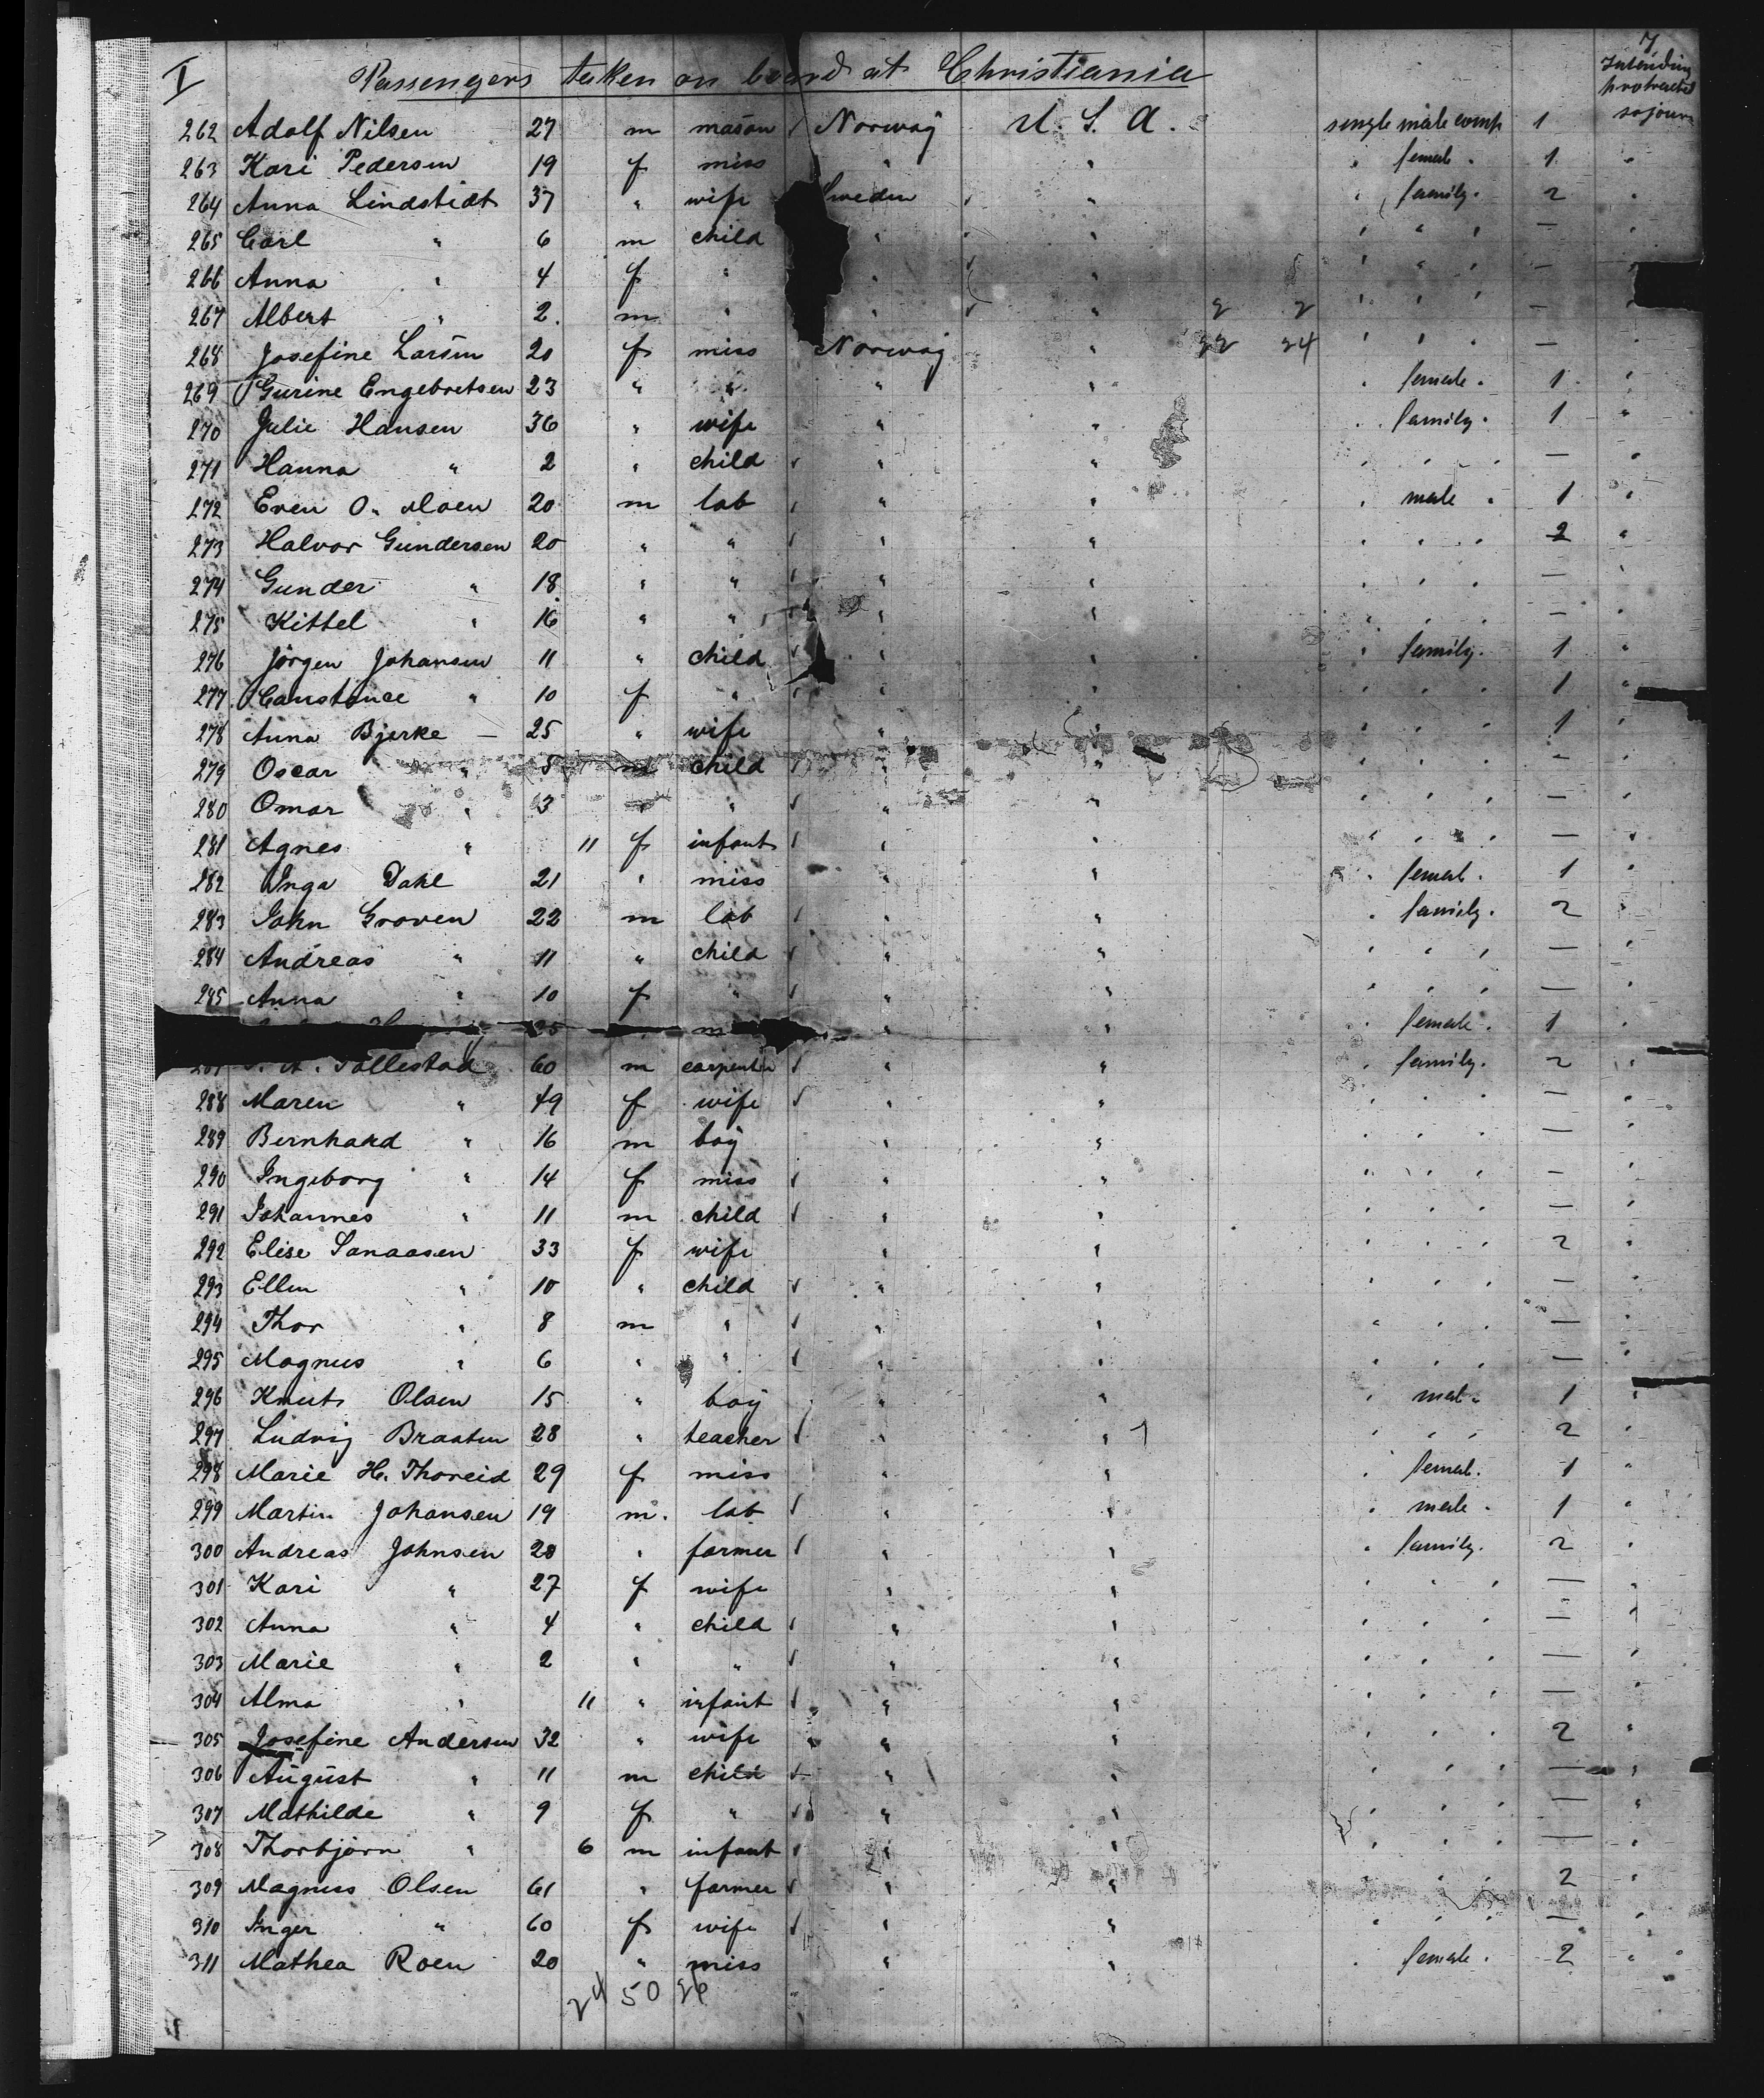 I Passengers taken on board at Christiania 7 Intending protracted sojourn
262 Adolf Nilsen 27 m mason Norway U. S. A. single male comp 1
263 Kari Pedersen 19 f miss " " " female " 1 "
264 Anna Lindstidt 37 " wife Sweden " " family " 2 "
265 Carl " 6 m child " " " " " — "
266 Anna " 4 f " " " " " " — "
267 Albert " 2 m " " " 2 2 " " " — "
268 Josefine Larsen 20 f miss Norway " 22 24 " " " — "
269 Gurine Engebretsen 23 " " " " " female " 1 "
270 Julie Hansen 36 " wife " " " family " 1 "
271 Hanna " 2 " child " " " " " — "
272 Even O. Moen 20 m lab " " " male " 1 "
273 Halvor Gundersen 20 " " " " " " " 2 "
274 Gunder " 18 " " " " " " " — "
275 Kittel " 16 " " " " " " " — "
276 Jörgen Johansen 11 " child " " " family " 1 "
277 Constance " 10 f " " " " " " 1 "
278 Anna Bjerke — 25 " wife " " " " " 1 "
279 Oscar " 5 m child " " " " " — "
280 Omar " 3 " " " " " " " — "
281 Agnes " 11 f infant " " " " " — "
282 Inga Dahl 21 " miss " " " female " 1 "
283 John Groven 22 m lab " " " family " 2 "
284 Andreas " 11 " child " " " " " — "
285 Anna " 10 f " " " " " " — "
" " " female " 1 "
Tollestad 60 m carpenter " " " family " 2 "
288 Maren " 49 f wife " " " " " — "
289 Bernhard " 16 m boy " " " " " — "
290 Ingeborg " 14 f miss " " " " " — "
291 Johannes " 11 m child " " " " " — "
292 Elise Sanaasen 33 f wife " " " " " 2 "
293 Ellen " 10 " child " " " " " — "
294 Thor " 8 m " " " " " " — "
295 Magnus " 6 " " " " " " " — "
296 Knut Olsen 15 " boy " " " male " 1 "
297 Ludvig Braaten 28 " teacher " " " " " 2 "
298 Marie H. Thoreid 29 f miss " " " female " 1 "
299 Martin Johansen 19 m. lab " " " male " 1 "
300 Andreas Johnsen 28 " farmer " " " family " 2 "
301 Kari " 27 f wife " " " " " — "
302 Anna " 4 " child " " " " " — "
303 Marie " 2 " " " " " " " — "
304 Alma " 11 " infant " " " " " — "
305 Josefine Andersen 32 " wife " " " " " 2 "
306 August " 11 m child " " " " " — "
307 Mathilde " 9 f " " " " " " — "
308 Thorbjörn " 6 m infant " " " " " — "
309 Magnus Olsen 61 " farmer " " " " " 2 "
310 Inger " 60 f wife " " " " " — "
311 Mathea Roen 20 " miss " " " female " 2 "
24 50 26